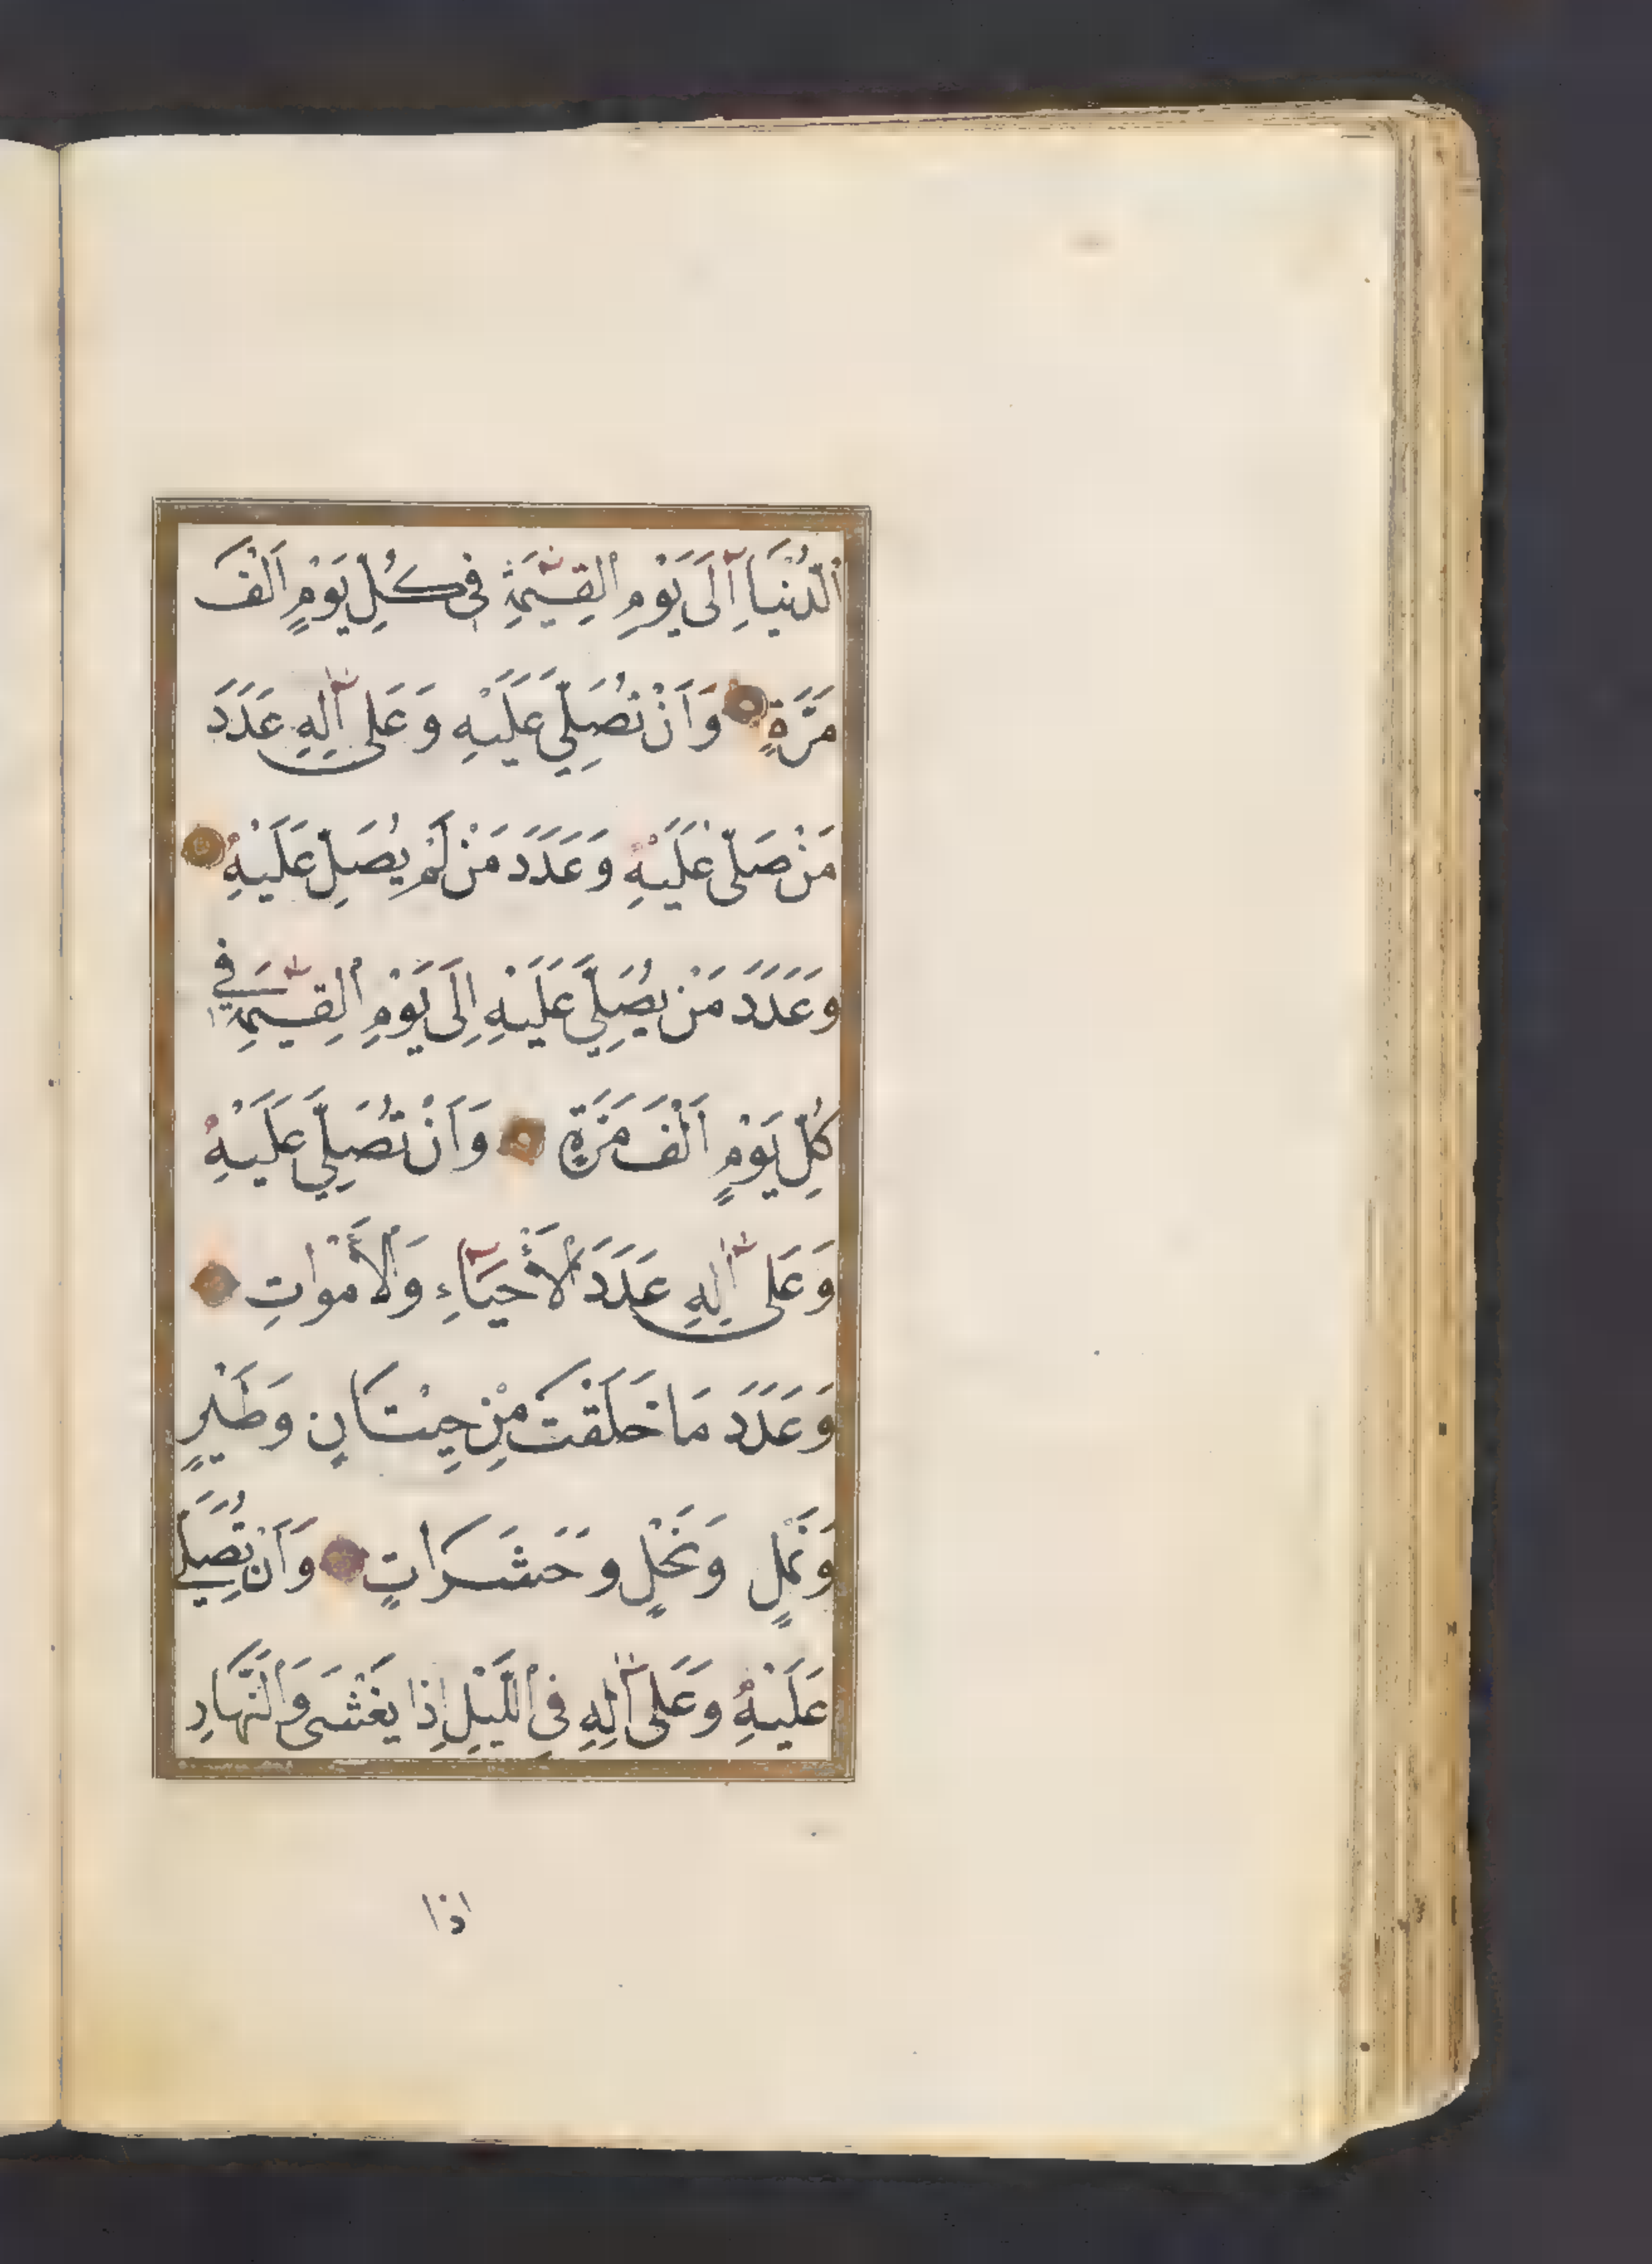 اَلدُّنْيَا اِلَى يَوْمِ الْقِيٰمَةِ فِى كُلِّ يَوْمٍ اَلْفَ
مَرَّةٍ وَاَنْ تُصَلِّيَ عَلَيْهِ وَعَلَى اٰلِهِ عَدَدَ
مَنْ صَلَّى عَلَيْهِ وَعَدَدَ مَنْ لَمْ يُصَلِّ عَلَيْهِ
وَعَدَدَ مَنْ يُصَلِّي عَلَيْهِ اِلَى يَوْمِ الْقِيٰمَةِ فِي
كُلِّ يَوْمٍ اَلْفَ مَرَّةٍ وَاَنْ تُصَلِّيَ عَلَيْهِ
وَعَلَى اٰلِهِ عَدَدَ الْأَحْيَآءِ وَالْأَمْوَاتِ
وَعَدَدَ مَا خَلَقْتَ مِنْ حِيْتَانٍ وَطَيْرٍ
وَنَمْلٍ وَنَحْلٍ وَحَشَرَاتٍ وَاَنْ تُصَلِّيَ
عَلَيْهِ وَعَلَى اٰلِهِ فِى الَّيْلِ اِذَا يَغْشَى وَالنَّهَارِ
اذا